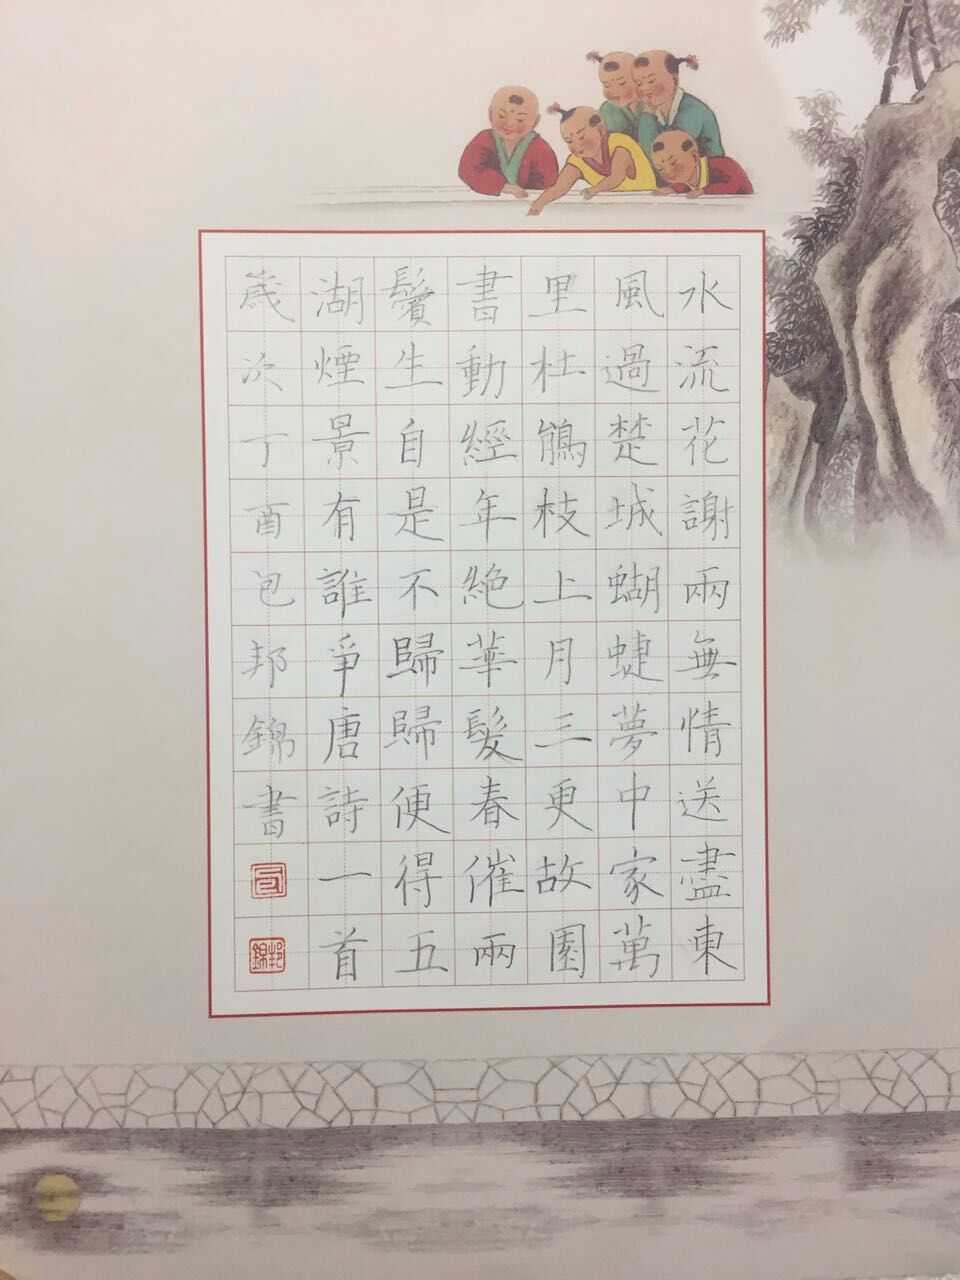 水流花謝兩無情送盡東
風過楚城蝴蝶夢中家萬
里杜鵑枝上月三更故園
書動經年絕華髮春催兩
鬢生自是不歸歸便得五
湖煙景有誰爭唐詩一首
歲次丁酉包邦錦書
包
邦錦